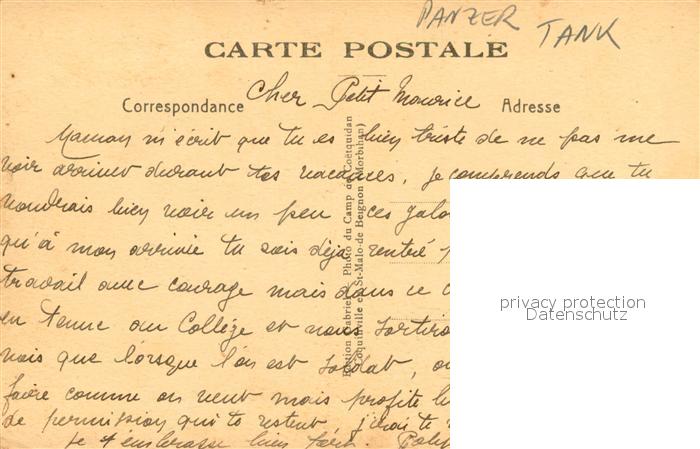 PANZER TANK
CARTE POSTALE
Correspondance Cher Petit Maurice Adresse
Maman m'écrit que tu es bien triste de ne pas me
voir arriver durant tes vacances, je comprends que tu
voudrais bien voir un peu ces
qu'à mon arrivée tu sois déjà rentré
travail avec courage mais dans ce
en tenue au Collège et nous
vois que lorsque l'on est soldat,
faire comme on veut mais profite
de permission qui te restent, j'irai te
Je t'embrasse bien fort.
Edition Gabriel - Photo du Camp de Coëtquidan
Coquinville en St-Malo-de Beignon (Morbihan)
privacy protection
Datenschutz